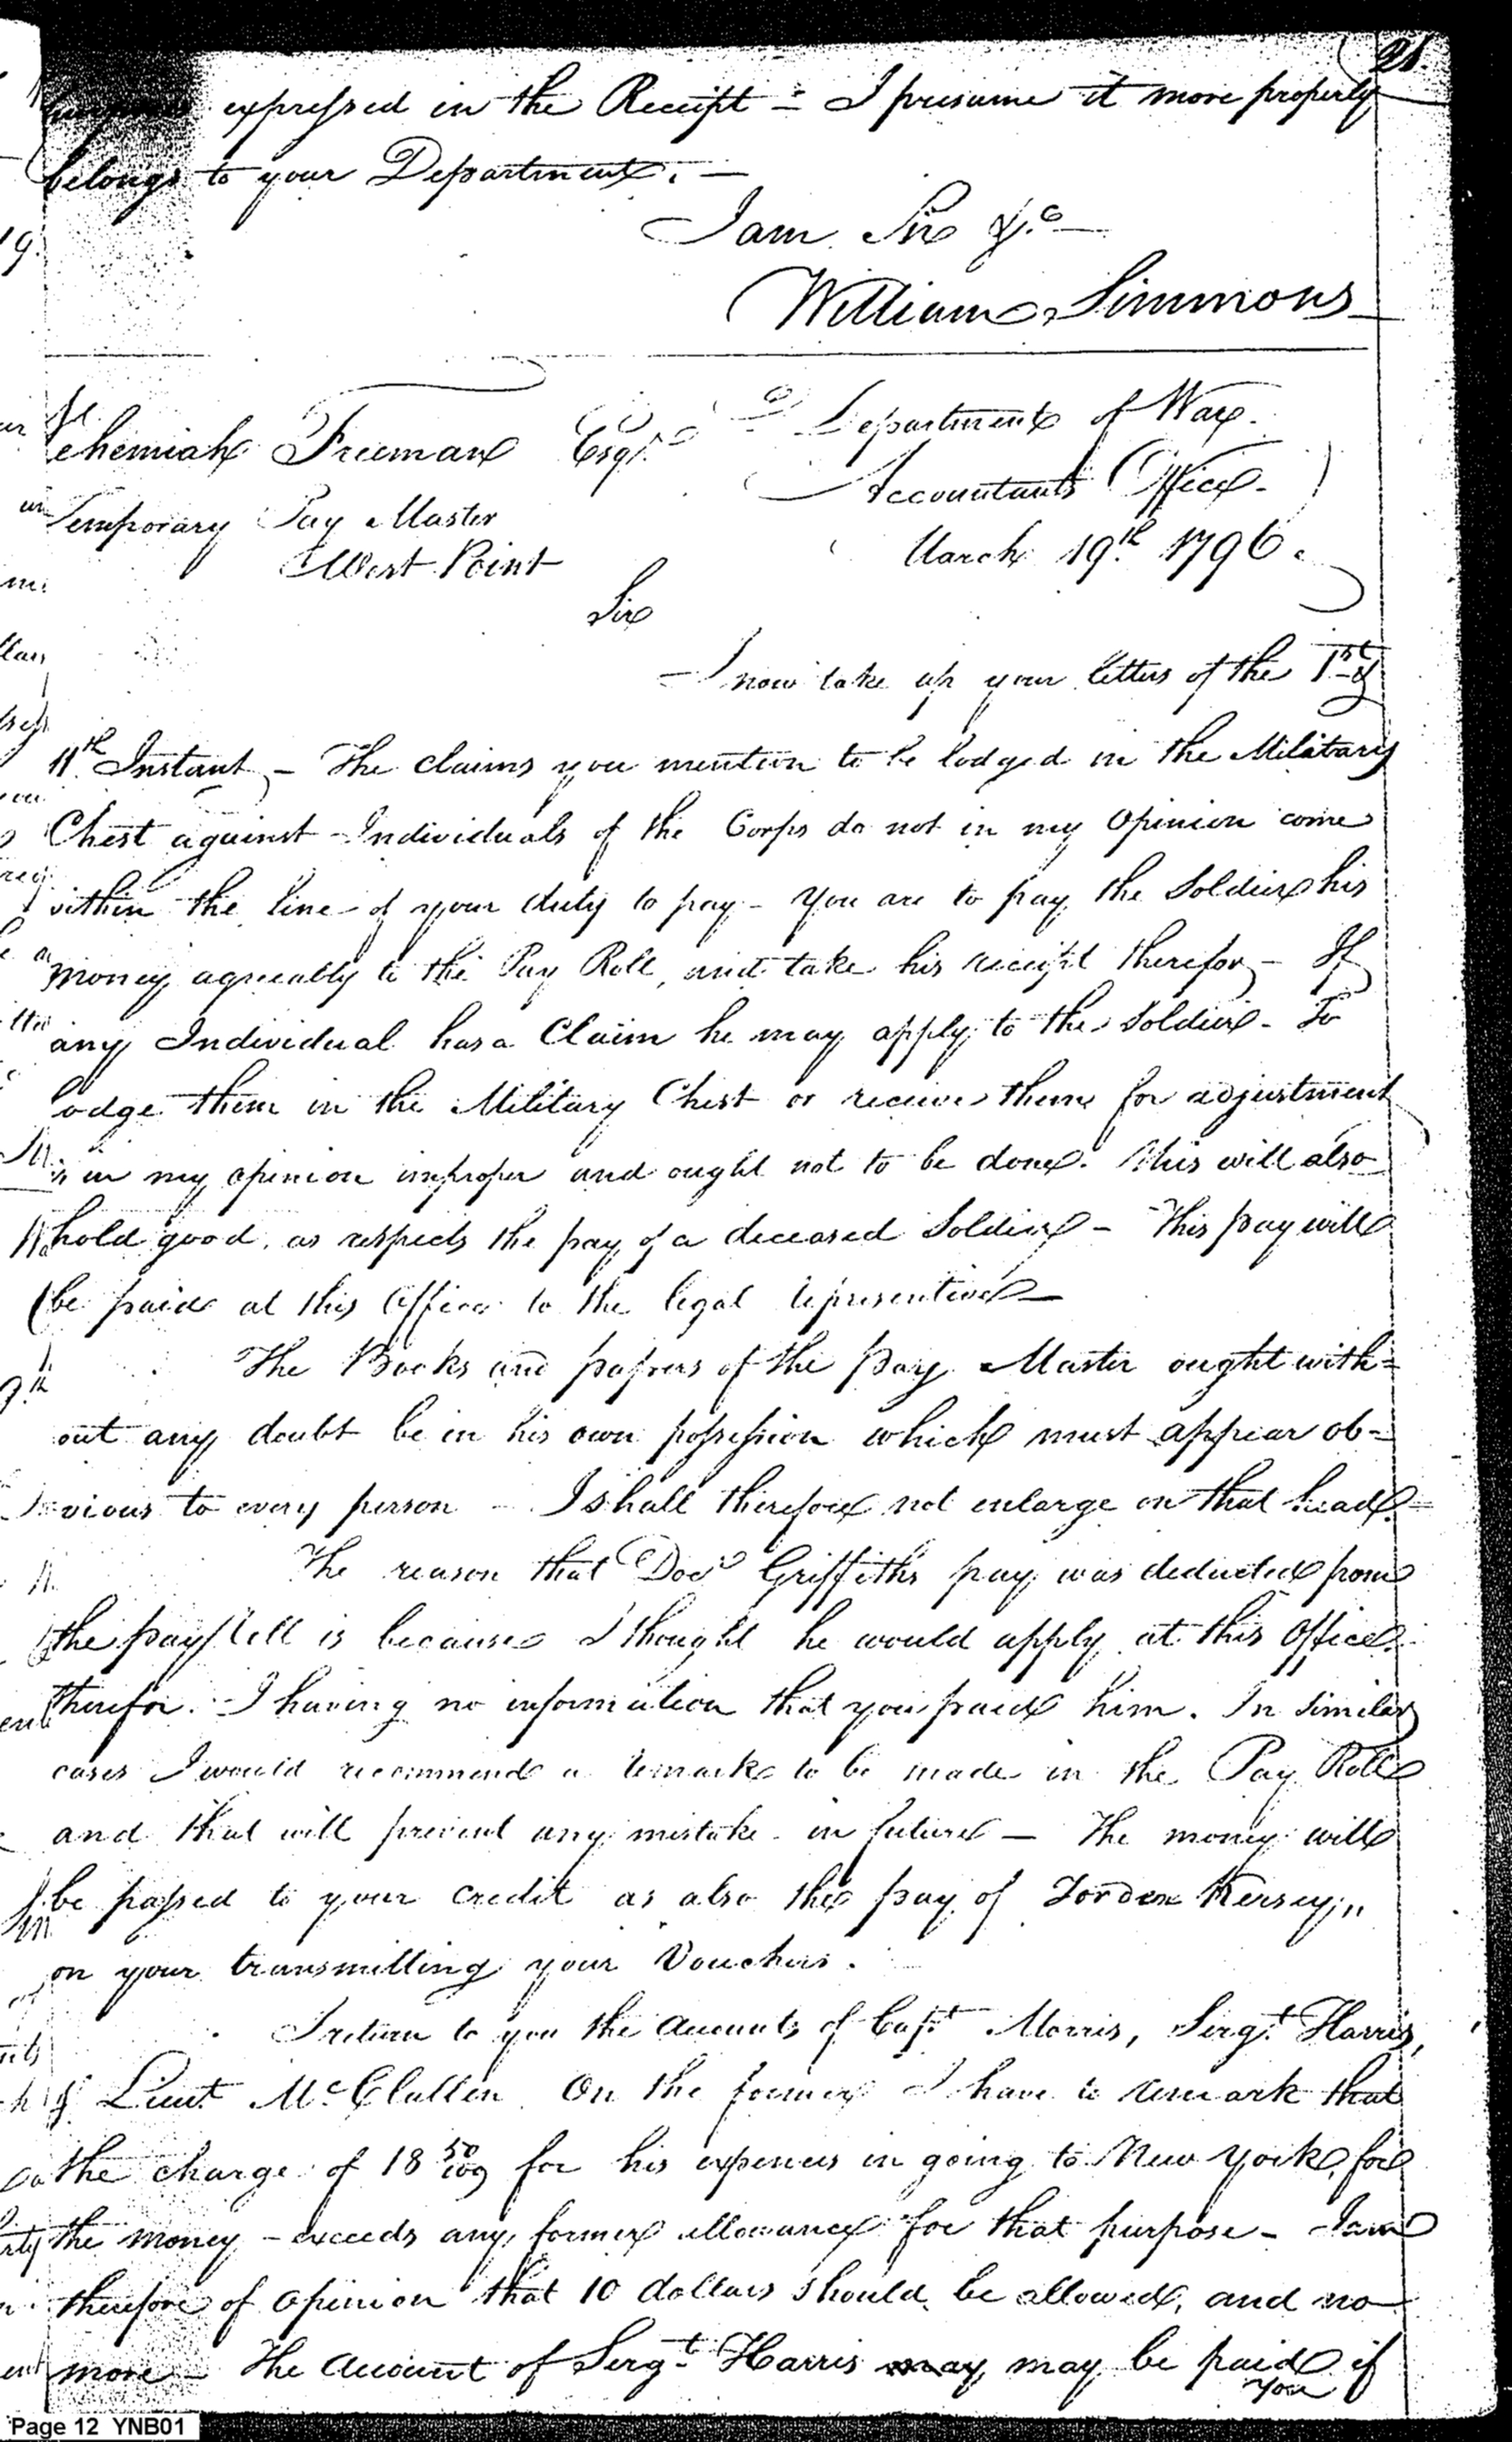 21.
expressed in the Receipt - I presume it more properly
belongs to your Department. -
I am Sir &c -
William Simmons
Department of War
Nehemiah Freeman Esqr.
Accountants Office
Temporary Pay Master
March 19th 1796.
West Point
Sir
I now take up your letters of the 1st &
11th Instant - The claims you mention to be lodged in the Military
Chest against Individuals of the Corps do not in my opinion come
within the line of your duty to pay - You are to pay the Soldier his
money agreeably to the Pay Roll, and take his receipt therefor - If
any Individual has a Claim he may apply to the Soldier - To
lodge them in the Military Chest or receive them for adjustment
is in my opinion improper and ought not to be done. This will also
hold good as respects the pay of a deceased Soldier - This pay will
be paid at this Office to the legal representive -
The Books and papers of the Pay Master ought with=
out any doubt be in his own possession which must appear ob=
vious to every person - I shall therefore not enlarge on that head. =
The reason that Docr Griffiths pay was deducted from
the pay Roll is because I thought he would apply at this Office
therefor. I having no information that you paid him. In similar
cases I would recommend a remark to be made in the Pay Roll
and that will prevent any mistake in future - The money will
be passed to your credit as also the pay of Jorden Kersey,,
on your transmitting your Vouchers.
I return to you the accounts of Capt Morris, Sergt Harris,
& Lieut McClallen On the former I have to remark that
the charge of 18 50/100 for his expences in going to New York for
the money - exceeds any former allowance for that purpose - I am
therefore of opinion that 10 dollars should be allowed, and no
more - The Account of Sergt Harris may may be paid if
you
Page 12 YNB01